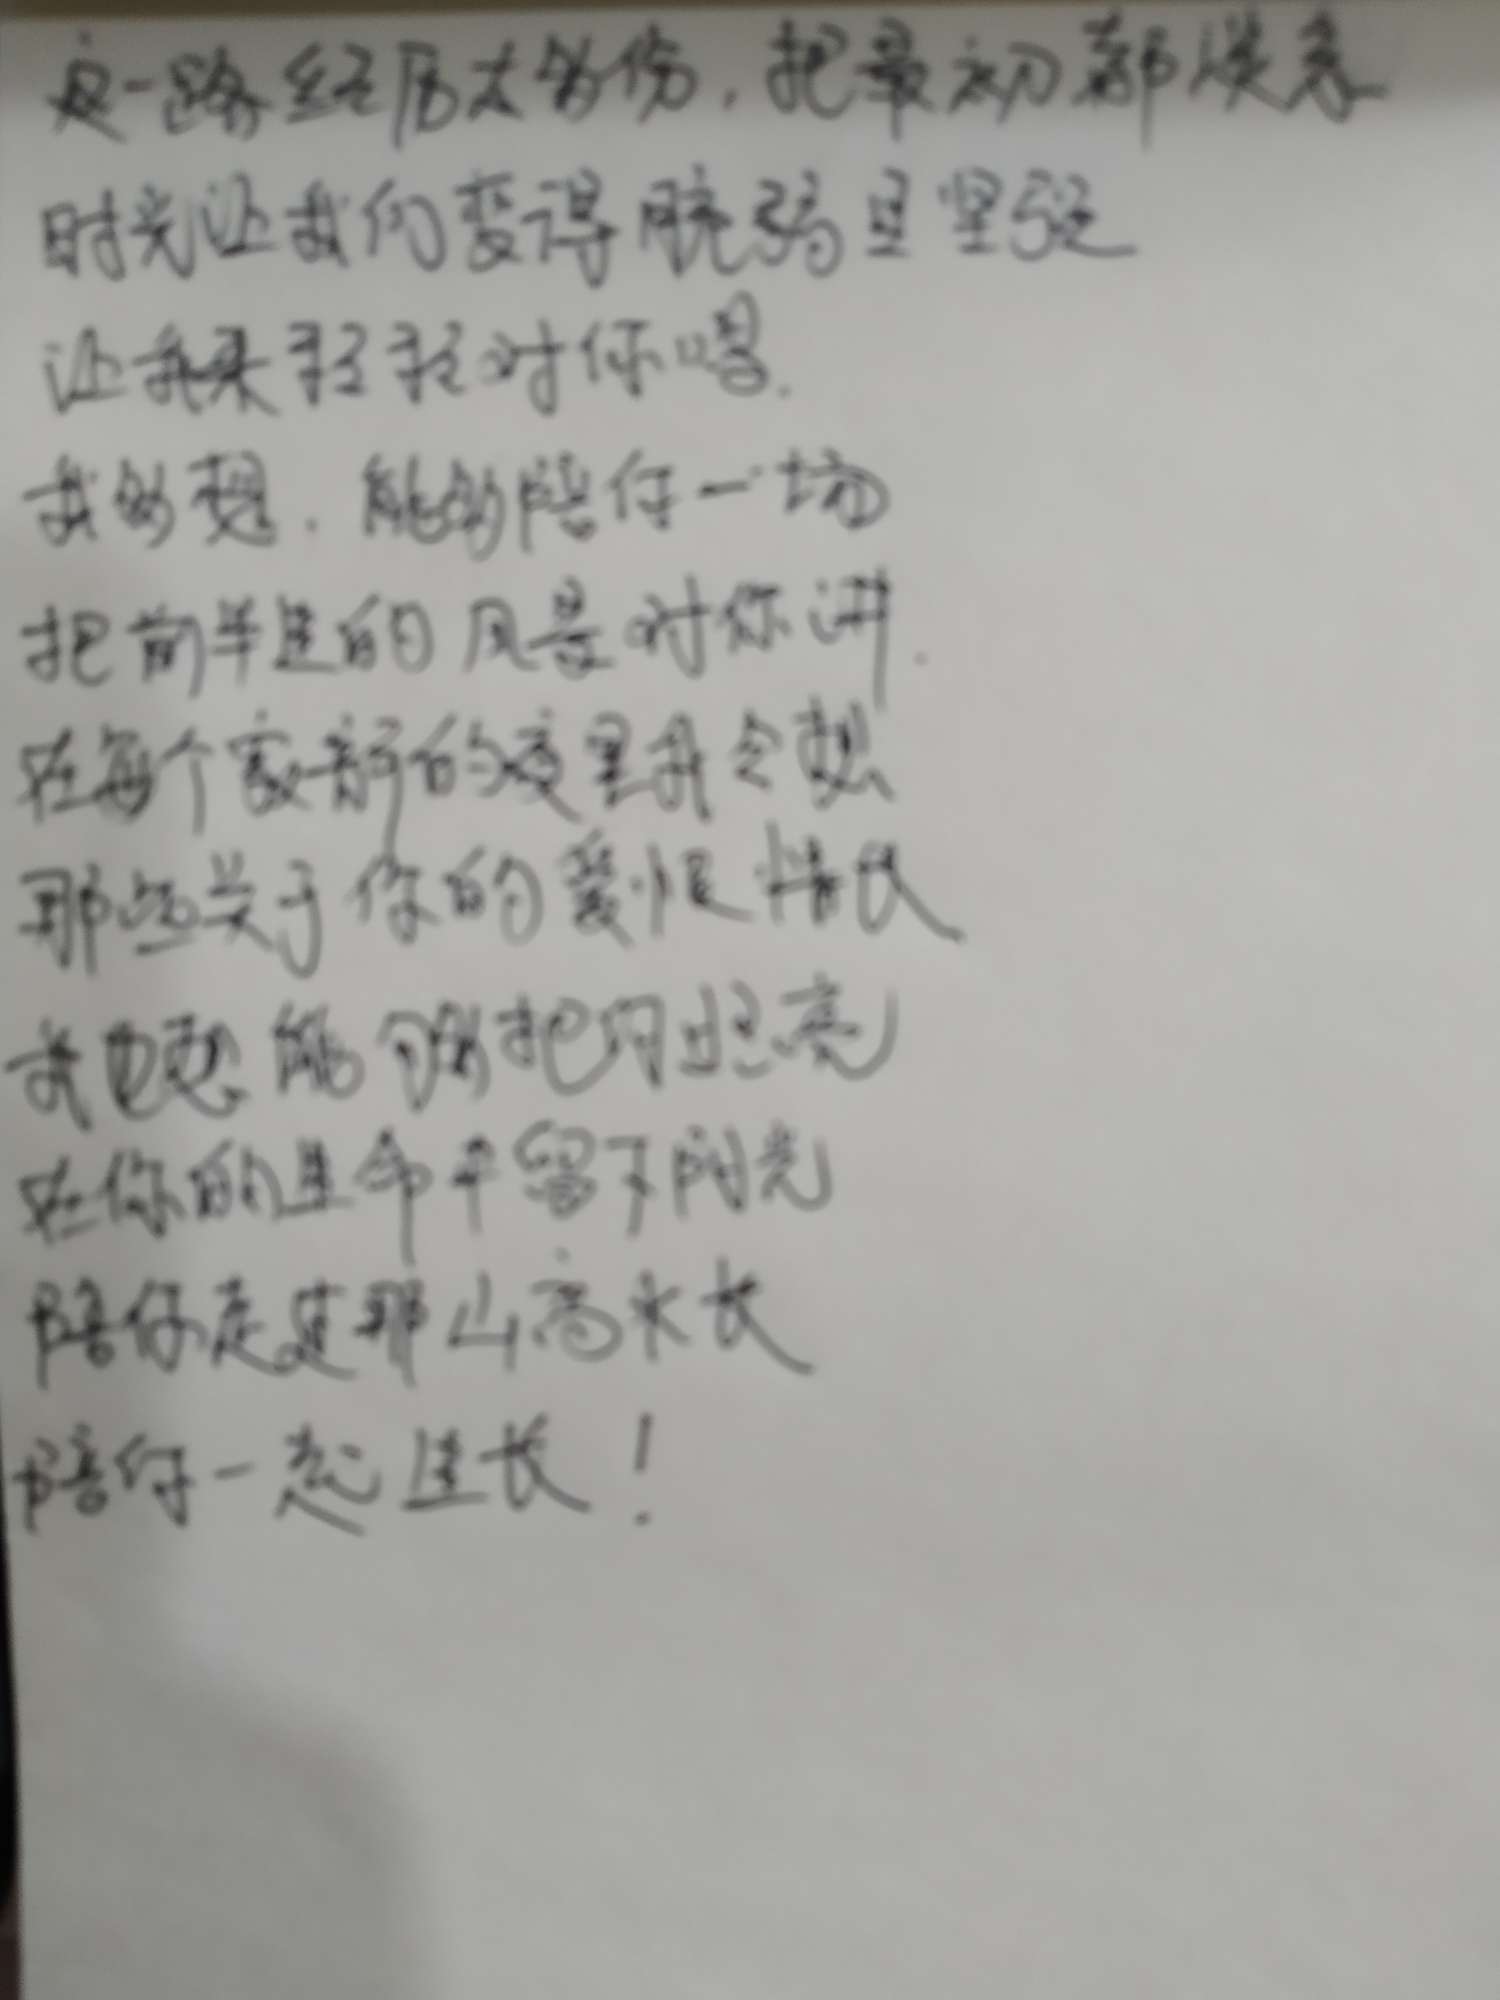 这一路经历太多伤,把最初都淡忘
时光让我们变得脆弱且坚强
让我来轻轻对你唱
我多想,能够陪你一场
把前半生的风景对你讲.
在每个寂静的夜里我会想
那些关于你的爱恨情长
我也想能够把你照亮
在你的生命中留下阳光
陪你走过那山高水长
陪你一起生长!